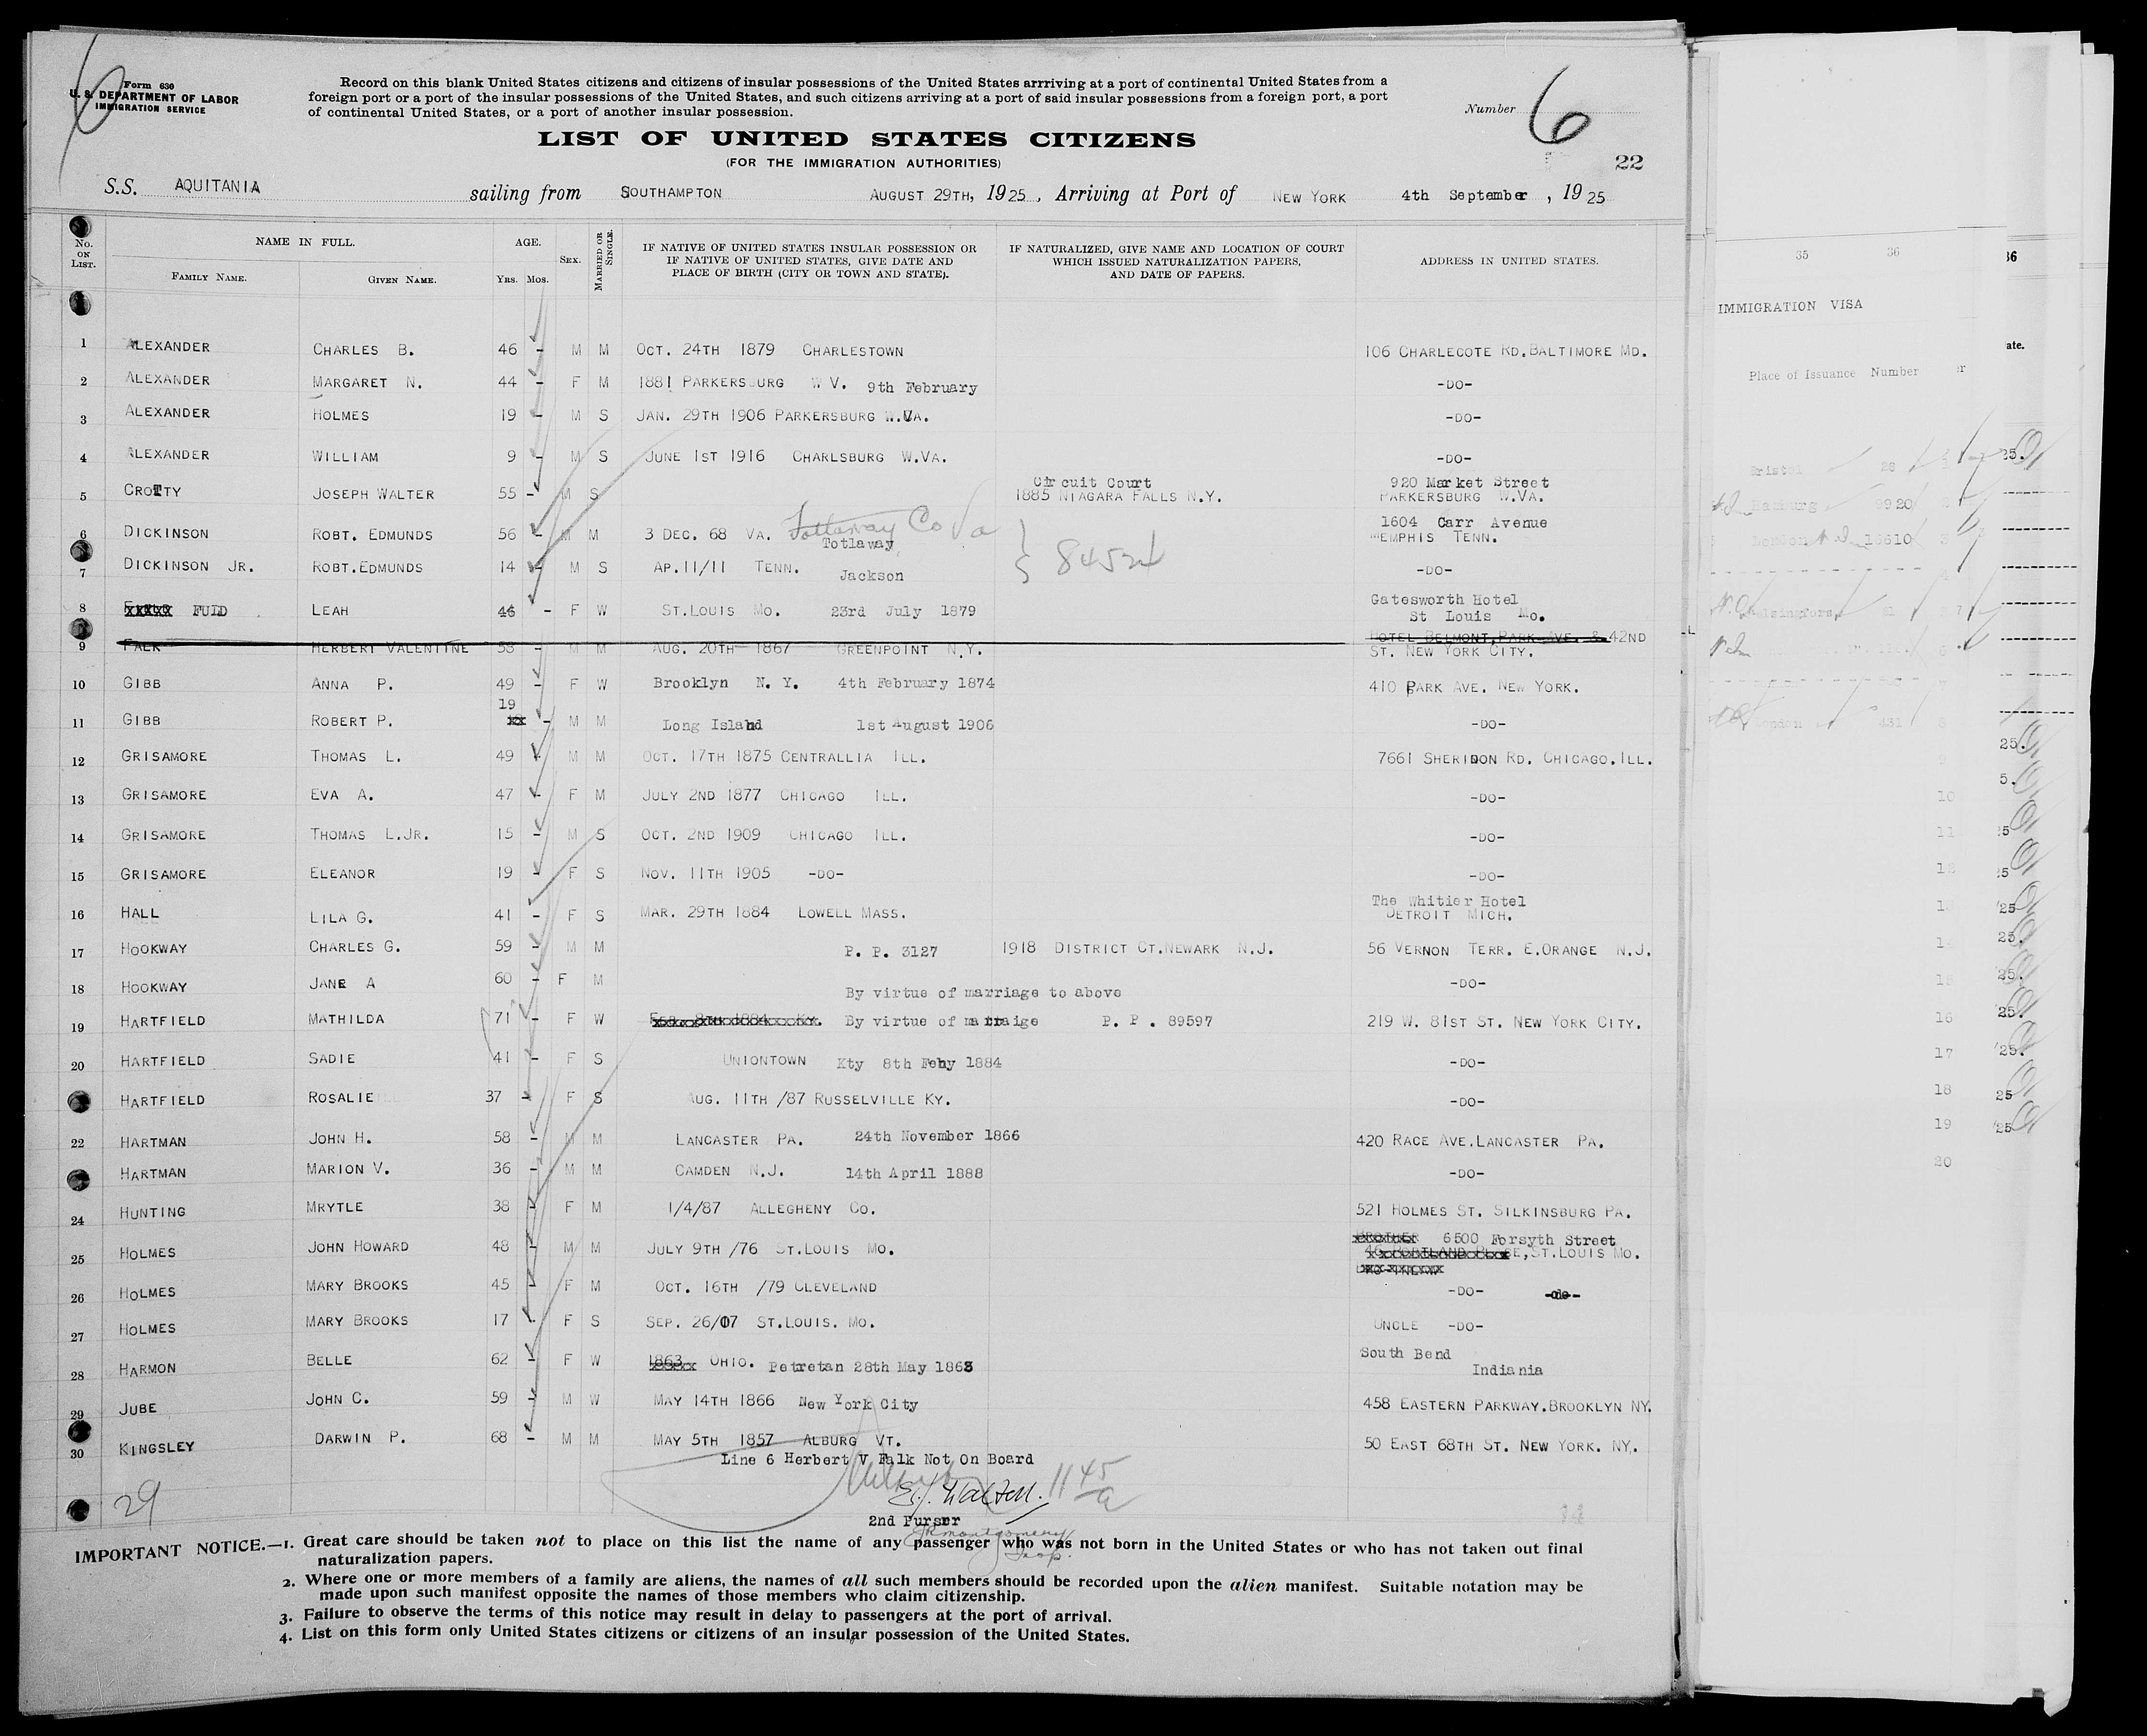 Form 630
U. S. DEPARTMENT OF LABOR
IMMIGRATION SERVICE
Record on this blank United States citizens and citizens of insular possessions of the United States arrriving at a port of continental United States from a
foreign port or a port of the insular possessions of the United States, and such citizens arriving at a port of said insular possessions from a foreign port, a port
of continental United States, or a port of another insular possession.
Number 6
LIST OF UNITED STATES CITIZENS
(FOR THE IMMIGRATION AUTHORITIES)
22
S.S. AQUITANIA sailing from SOUTHAMPTON AUGUST 29TH, 1925, Arriving at Port of NEW YORK 4th September, 1925
No. ON LIST. NAME IN FULL. FAMILY NAME. GIVEN NAME. AGE. YRS. MOS. SEX. MARRIED OR SINGLE. IF NATIVE OF UNITED STATES INSULAR POSSESSION OR IF NATIVE OF UNITED STATES, GIVE DATE AND PLACE OF BIRTH (CITY OR TOWN AND STATE). IF NATURALIZED, GIVE NAME AND LOCATION OF COURT WHICH ISSUED NATURALIZATION PAPERS, AND DATE OF PAPERS. ADDRESS IN UNITED STATES.
1 ALEXANDER CHARLES B. 46 - M M OCT. 24TH 1879 CHARLESTOWN 106 CHARLECOTE RD. BALTIMORE MD.
2 ALEXANDER MARGARET N. 44 - F M 1881 PARKERSBURG W V. 9th February -DO-
3 ALEXANDER HOLMES 19 - M S JAN. 29TH 1906 PARKERSBURG W.VA. -DO-
4 ALEXANDER WILLIAM 9 - M S JUNE 1ST 1916 CHARLSBURG W.VA. -DO-
Circuit Court 920 Market Street
5 CROTTY JOSEPH WALTER 55 - M S 1885 NIAGARA FALLS N.Y. PARKERSBURG W.VA.
1604 Carr Avenue
6 DICKINSON ROBT. EDMUNDS 56 - M M 3 DEC. 68 VA. Tottaway Co Va MEMPHIS TENN.
Totlaway
7 DICKINSON JR. ROBT. EDMUNDS 14 - M S AP.11/11 TENN. Jackson -DO-
Gatesworth Hotel
8 FULD LEAH 46 - F W ST.LOUIS MO. 23rd July 1879 St Louis Mo.
HOTEL BELMONT, PARK AVE. & 42ND
9 FALK HERBERT VALENTINE 58 - M M AUG. 20TH 1867 GREENPOINT N.Y. ST. NEW YORK CITY.
10 GIBB ANNA P. 49 - F W Brooklyn N. Y. 4th February 1874 410 PARK AVE. NEW YORK.
19
11 GIBB ROBERT P. - M M Long Island 1st August 1906 -DO-
12 GRISAMORE THOMAS L. 49 - M M OCT. 17TH 1875 CENTRALLIA ILL. 7661 SHERIDON RD. CHICAGO.ILL.
13 GRISAMORE EVA A. 47 - F M JULY 2ND 1877 CHICAGO ILL. -DO-
14 GRISAMORE THOMAS L.JR. 15 - M S OCT. 2ND 1909 CHICAGO ILL. -DO-
15 GRISAMORE ELEANOR 19 - F S NOV. 11TH 1905 -DO- -DO-
The Whitier Hotel
16 HALL LILA G. 41 - F S MAR. 29TH 1884 LOWELL MASS. DETROIT MICH.
17 HOOKWAY CHARLES G. 59 - M M P. P. 3127 1918 DISTRICT CT.NEWARK N.J. 56 VERNON TERR. E.ORANGE N.J.
18 HOOKWAY JANE A 60 - F M By virtue of marriage to above -DO-
19 HARTFIELD MATHILDA 71 - F W By virtue of marraige P. P. 89597 219 W. 81ST ST. NEW YORK CITY.
20 HARTFIELD SADIE 41 - F S UNIONTOWN Kty 8th Feby 1884 -DO-
HARTFIELD ROSALIE 37 - F S AUG. 11TH /87 RUSSELVILLE KY. -DO-
22 HARTMAN JOHN H. 58 - M M LANCASTER PA. 24th November 1866 420 RACE AVE.LANCASTER PA.
HARTMAN MARION V. 36 - M M CAMDEN N.J. 14th April 1888 -DO-
24 HUNTING MRYTLE 38 - F M 1/4/87 ALLEGHENY CO. 521 HOLMES ST. SILKINSBURG PA.
BROTHER 6500 Forsyth Street
25 HOLMES JOHN HOWARD 48 - M M JULY 9TH /76 ST.LOUIS MO. ST.LOUIS MO.
26 HOLMES MARY BROOKS 45 - F M OCT. 16TH /79 CLEVELAND -DO- -do-
27 HOLMES MARY BROOKS 17 - F S SEP. 26/07 ST.LOUIS. MO. UNCLE -DO-
28 HARMON BELLE 62 - F W 1863 OHIO. Petretan 28th May 1863 South Bend
Indiania
29 JUBE JOHN C. 59 - M W MAY 14TH 1866 New York City 458 EASTERN PARKWAY.BROOKLYN NY.
30 KINGSLEY DARWIN P. 68 - M M MAY 5TH 1857 ALBURG VT. 50 EAST 68TH ST. NEW YORK. NY.
Line 6 Herbert V Falk Not On Board
29
E.J. Walton.
2nd Purser
JR Montgomery
Insp.
IMPORTANT NOTICE.—1. Great care should be taken not to place on this list the name of any passenger who was not born in the United States or who has not taken out final
naturalization papers.
2. Where one or more members of a family are aliens, the names of all such members should be recorded upon the alien manifest. Suitable notation may be
made upon such manifest opposite the names of those members who claim citizenship.
3. Failure to observe the terms of this notice may result in delay to passengers at the port of arrival.
4. List on this form only United States citizens or citizens of an insular possession of the United States.
35 36
IMMIGRATION VISA
Place of Issuance Number
Bristol 26
Hamburg 9920
London 16610
Helsingfors 61
London 431